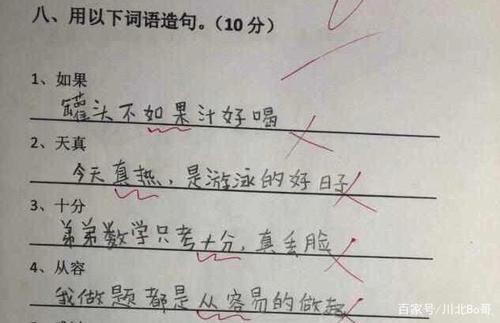 八、用以下词语造句。(10分)
1、如果
罐头不如果汁好喝
2、天真
今天真热，是游泳的好日子
3、十分
弟弟数学只考十分，真丢脸
4、从容
我做题都是从容易的做起
百家号/川北Bo哥